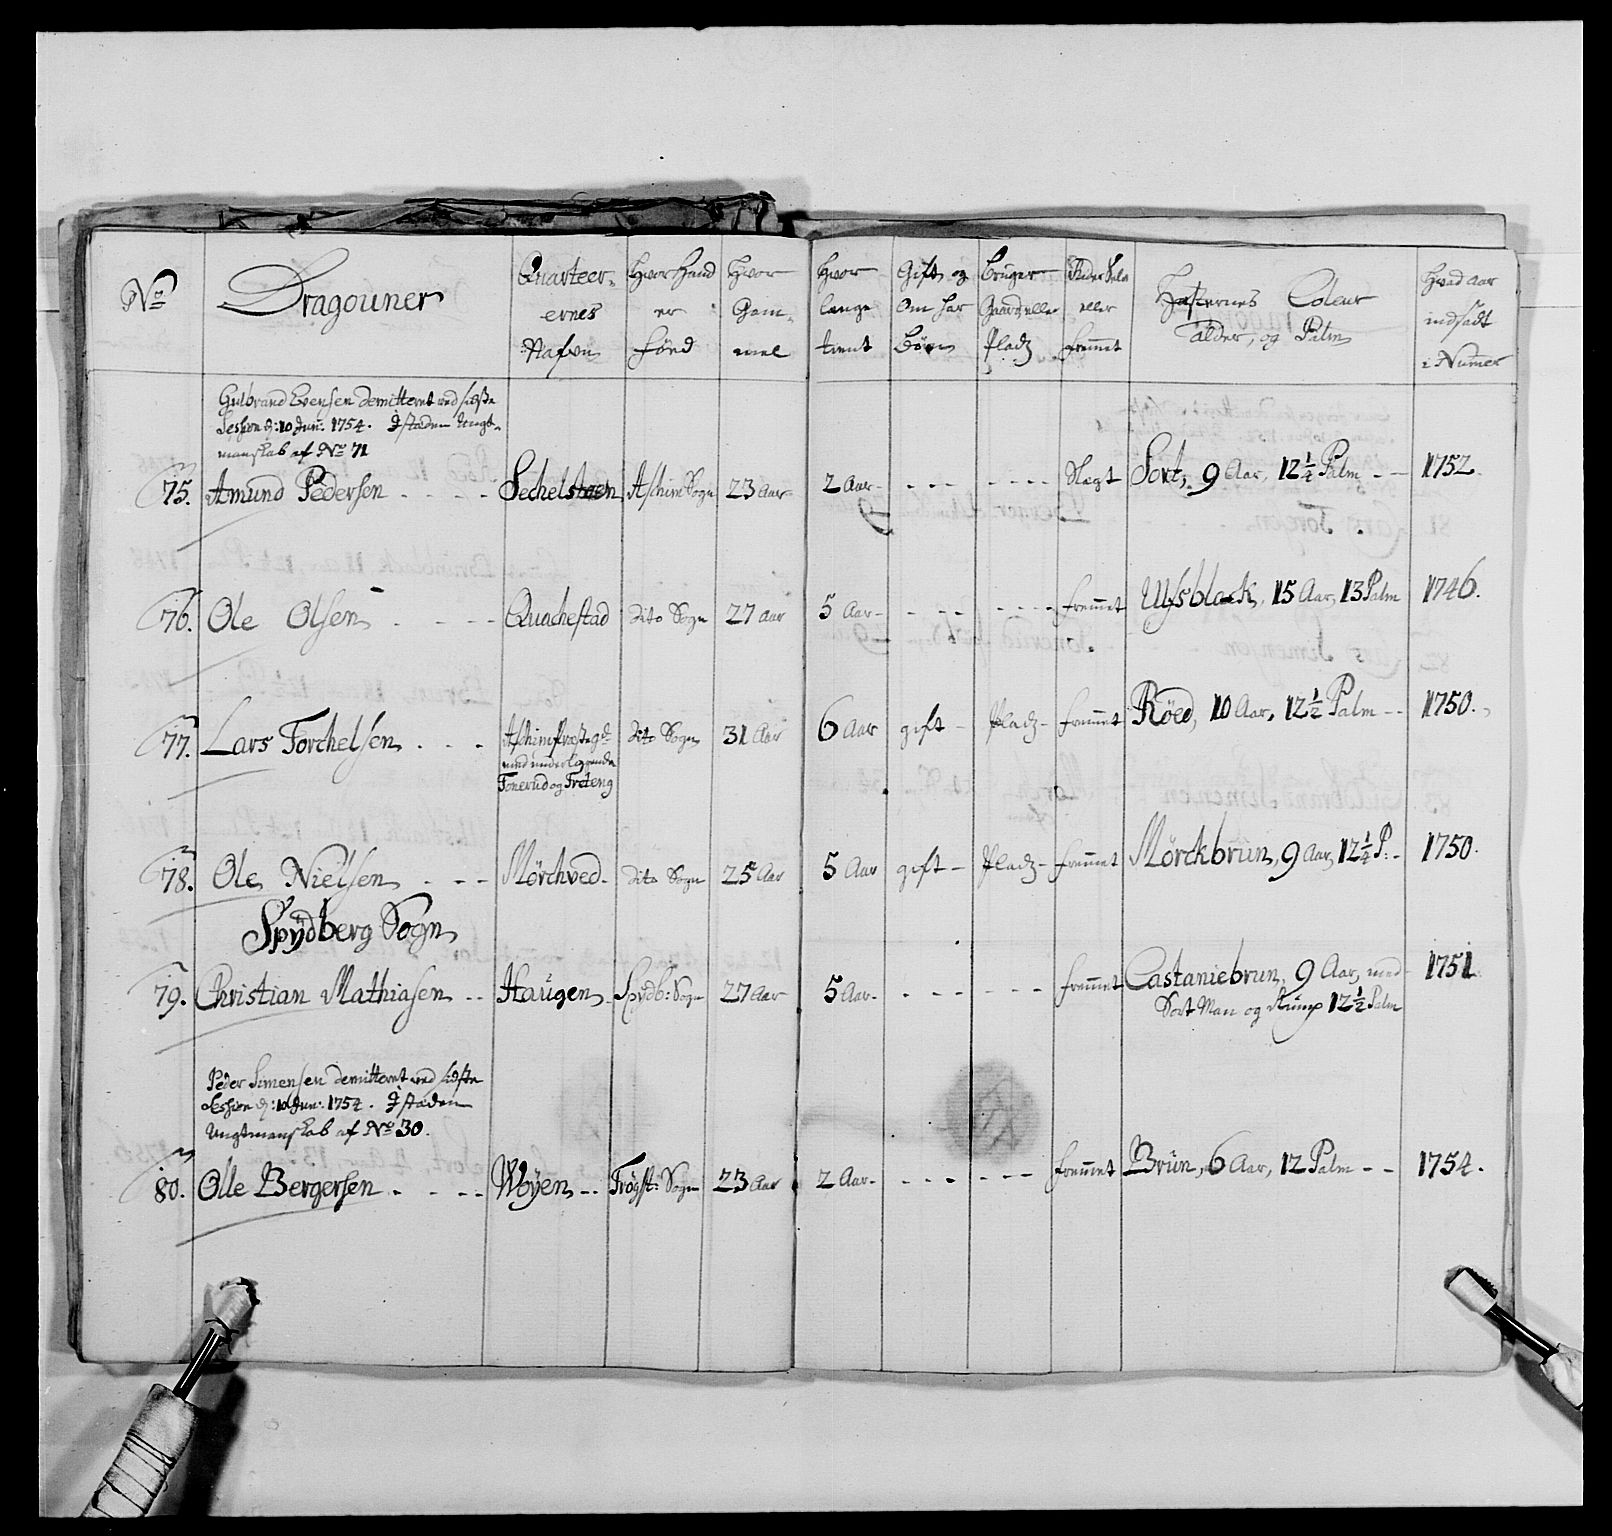 No
Dragouner
Quarteer-
ernes
Nafvn
Hvor Hand
er
föed
Hvor
Gam-
mel
Hvor
længe
tient
Gift, og
Om har
Börn
Bruger
Gaard eller
Pladz
eller
fremmet
Hæsternes Coleur
alder, og Palm
Hvad aar
indsadt
i Numer
Gulbrand Evensen demitteret ved sidste
Session d: 10 Jun: 1754. I stæden Ungt-
manskab af No 71
75. Amund Pedersen - - - - Sechelsteen Aschim Sogn 23 Aar 2 Aar - - - - - - - Slægt Sort, 9 Aar, 12 1/4 Palm - - 1752.
76. Ole Olsen - - - - Quachestad dito Sogn 27 aar 5 Aar - - - - - - - fremmet Ulfsblack, 15 Aar, 13 Palm 1746.
77. Lars Torchelsen - - - Aschim Præstegd
med underliggende
Fonerud og Freteng dito Sogn 31 Aar 6 Aar gift - Pladz - fremmet Röed, 10 Aar, 12 1/2 Palm - - 1750.
78. Ole Nielsen - - - Mörchved - dito Sogn 25 Aar 5 Aar gift - Pladz - fremmet Mörckbrun, 9 Aar, 12 1/4 P: - 1750.
Spydberg Sogn
79. Christian Mathiasen - - Haugen - Spydb: Sogn 27 Aar 5 Aar - - - - - - fremmet Castaniebrun, 9 Aar, med
Sort Man og Rump 12 1/2 Palm 1751.
Peder Simensen demitteret ved sidste
Session d: 10 Jun: 1754. I stæden
Ungtmanskab af No 30.
80. Olle Bergersen - - - - Wöyen - - Trögst: Sogn 23 Aar 2 Aar - - - - - - fremmet Brun, 6 Aar, 12 Palm - - 1754.